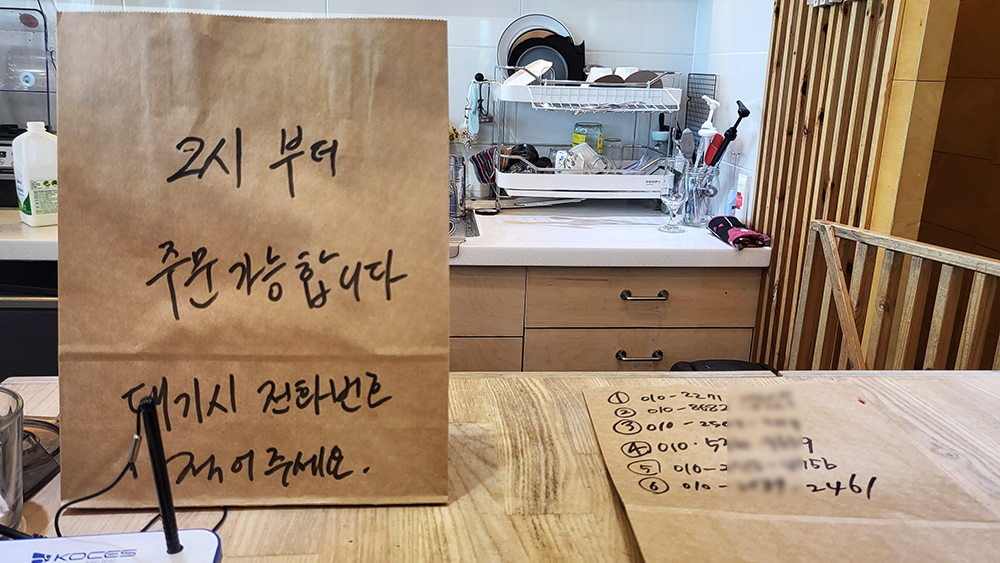 2시 부터
주문 가능합니다
대기시 전화번호
적어주세요.
① 010-2271
② 010-8682
③ 010-250
④ 010-5
⑤ 010-2 156
⑥ 010- 2461
KOCES